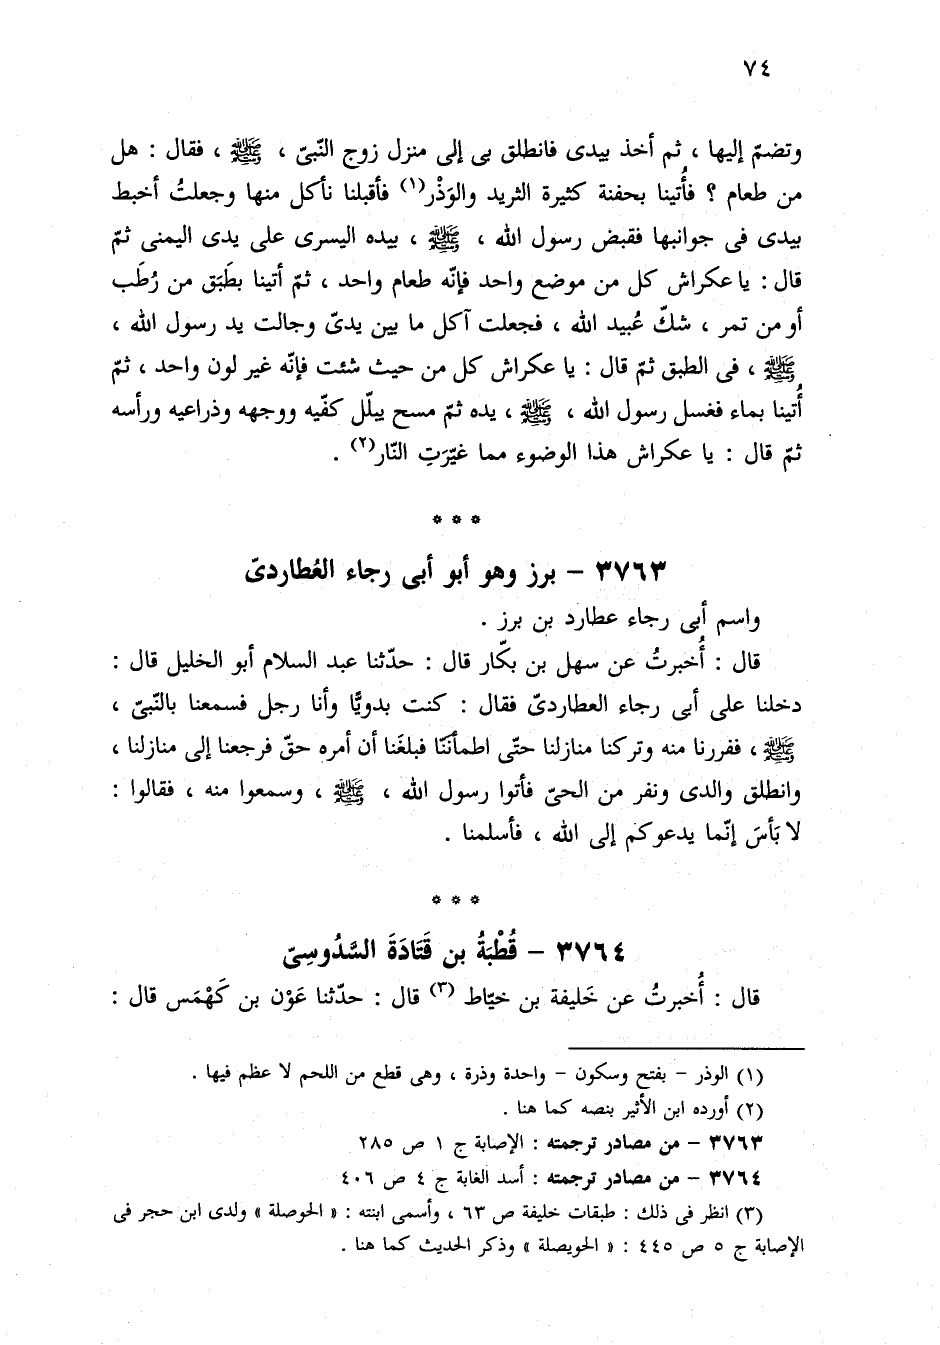 ٧٤
وتضمّ إليها ، ثم أخذ بيدى فانطلق بى إلى منزل زوج النّبىّ ، ﷺ ، فقال : هل
من طعام ؟ فأُتينا بحفنة كثيرة الثريد والوَذْر(١) فأقبلنا نأكل منها وجعلتُ أخبط
بيدى فى جوانبها فقبض رسول الله ، ﷺ ، بيده اليسرى على يدى اليمنى ثمّ
قال : يا عكراش كل من موضع واحد فإنّه طعام واحد ، ثمّ أتينا بطَبَق من رُطَب
أو من تمر ، شكّ عُبيد الله ، فجعلت آكل ما بين يدىّ وجالت يد رسول الله ،
ﷺ ، فى الطبق ثمّ قال : يا عكراش كل من حيث شئت فإنّه غير لون واحد ، ثمّ
أُتينا بماء فغسل رسول الله ، ﷺ ، يده ثمّ مسح ببلّل كفّيه ووجهه وذراعيه ورأسه
ثمّ قال : يا عكراش هذا الوضوء مما غيّرَتِ النّار(٢) .
* * *
٣٧٦٣ – برز وهو أبو أبى رجاء العُطاردىّ
واسم أبى رجاء عطارد بن برز .
قال : أُخبرتُ عن سهل بن بكّار قال : حدّثنا عبد السلام أبو الخليل قال :
دخلنا على أبى رجاء العطاردىّ فقال : كنت بدويًّا وأنا رجل فسمعنا بالنّبىّ ،
ﷺ ، ففررنا منه وتركنا منازلنا حتّى اطمأنَنّا فبلغَنا أن أمره حقّ فرجعنا إلى منازلنا ،
وانطلق والدى ونفر من الحىّ فأتوا رسول الله ، ﷺ ، وسمعوا منه ، فقالوا :
لا بَأسَ إنّما يدعوكم إلى الله ، فأسلمنا .
* * *
٣٧٦٤ – قُطْبَةُ بن قَتَادَةَ السَّدُوسِىّ
قال : أُخبرتُ عن خَليفة بن خيّاط (٣) قال : حدّثنا عَوْن بن كَهْمَس قال :
(١) الوذر – بفتح وسكون – واحدة وذرة ، وهى قطع من اللحم لا عظم فيها .
(٢) أورده ابن الأثير بنصه كما هنا .
٣٧٦٣ – من مصادر ترجمته : الإصابة ج ١ ص ٢٨٥
٣٧٦٤ – من مصادر ترجمته : أسد الغابة ج ٤ ص ٤٠٦
(٣) انظر فى ذلك : طبقات خليفة ص ٦٣ ، وأسمى ابنته : « الحوصلة » ولدى ابن حجر فى
الإصابة ج ٥ ص ٤٤٥ : « الحويصلة » وذكر الحديث كما هنا .